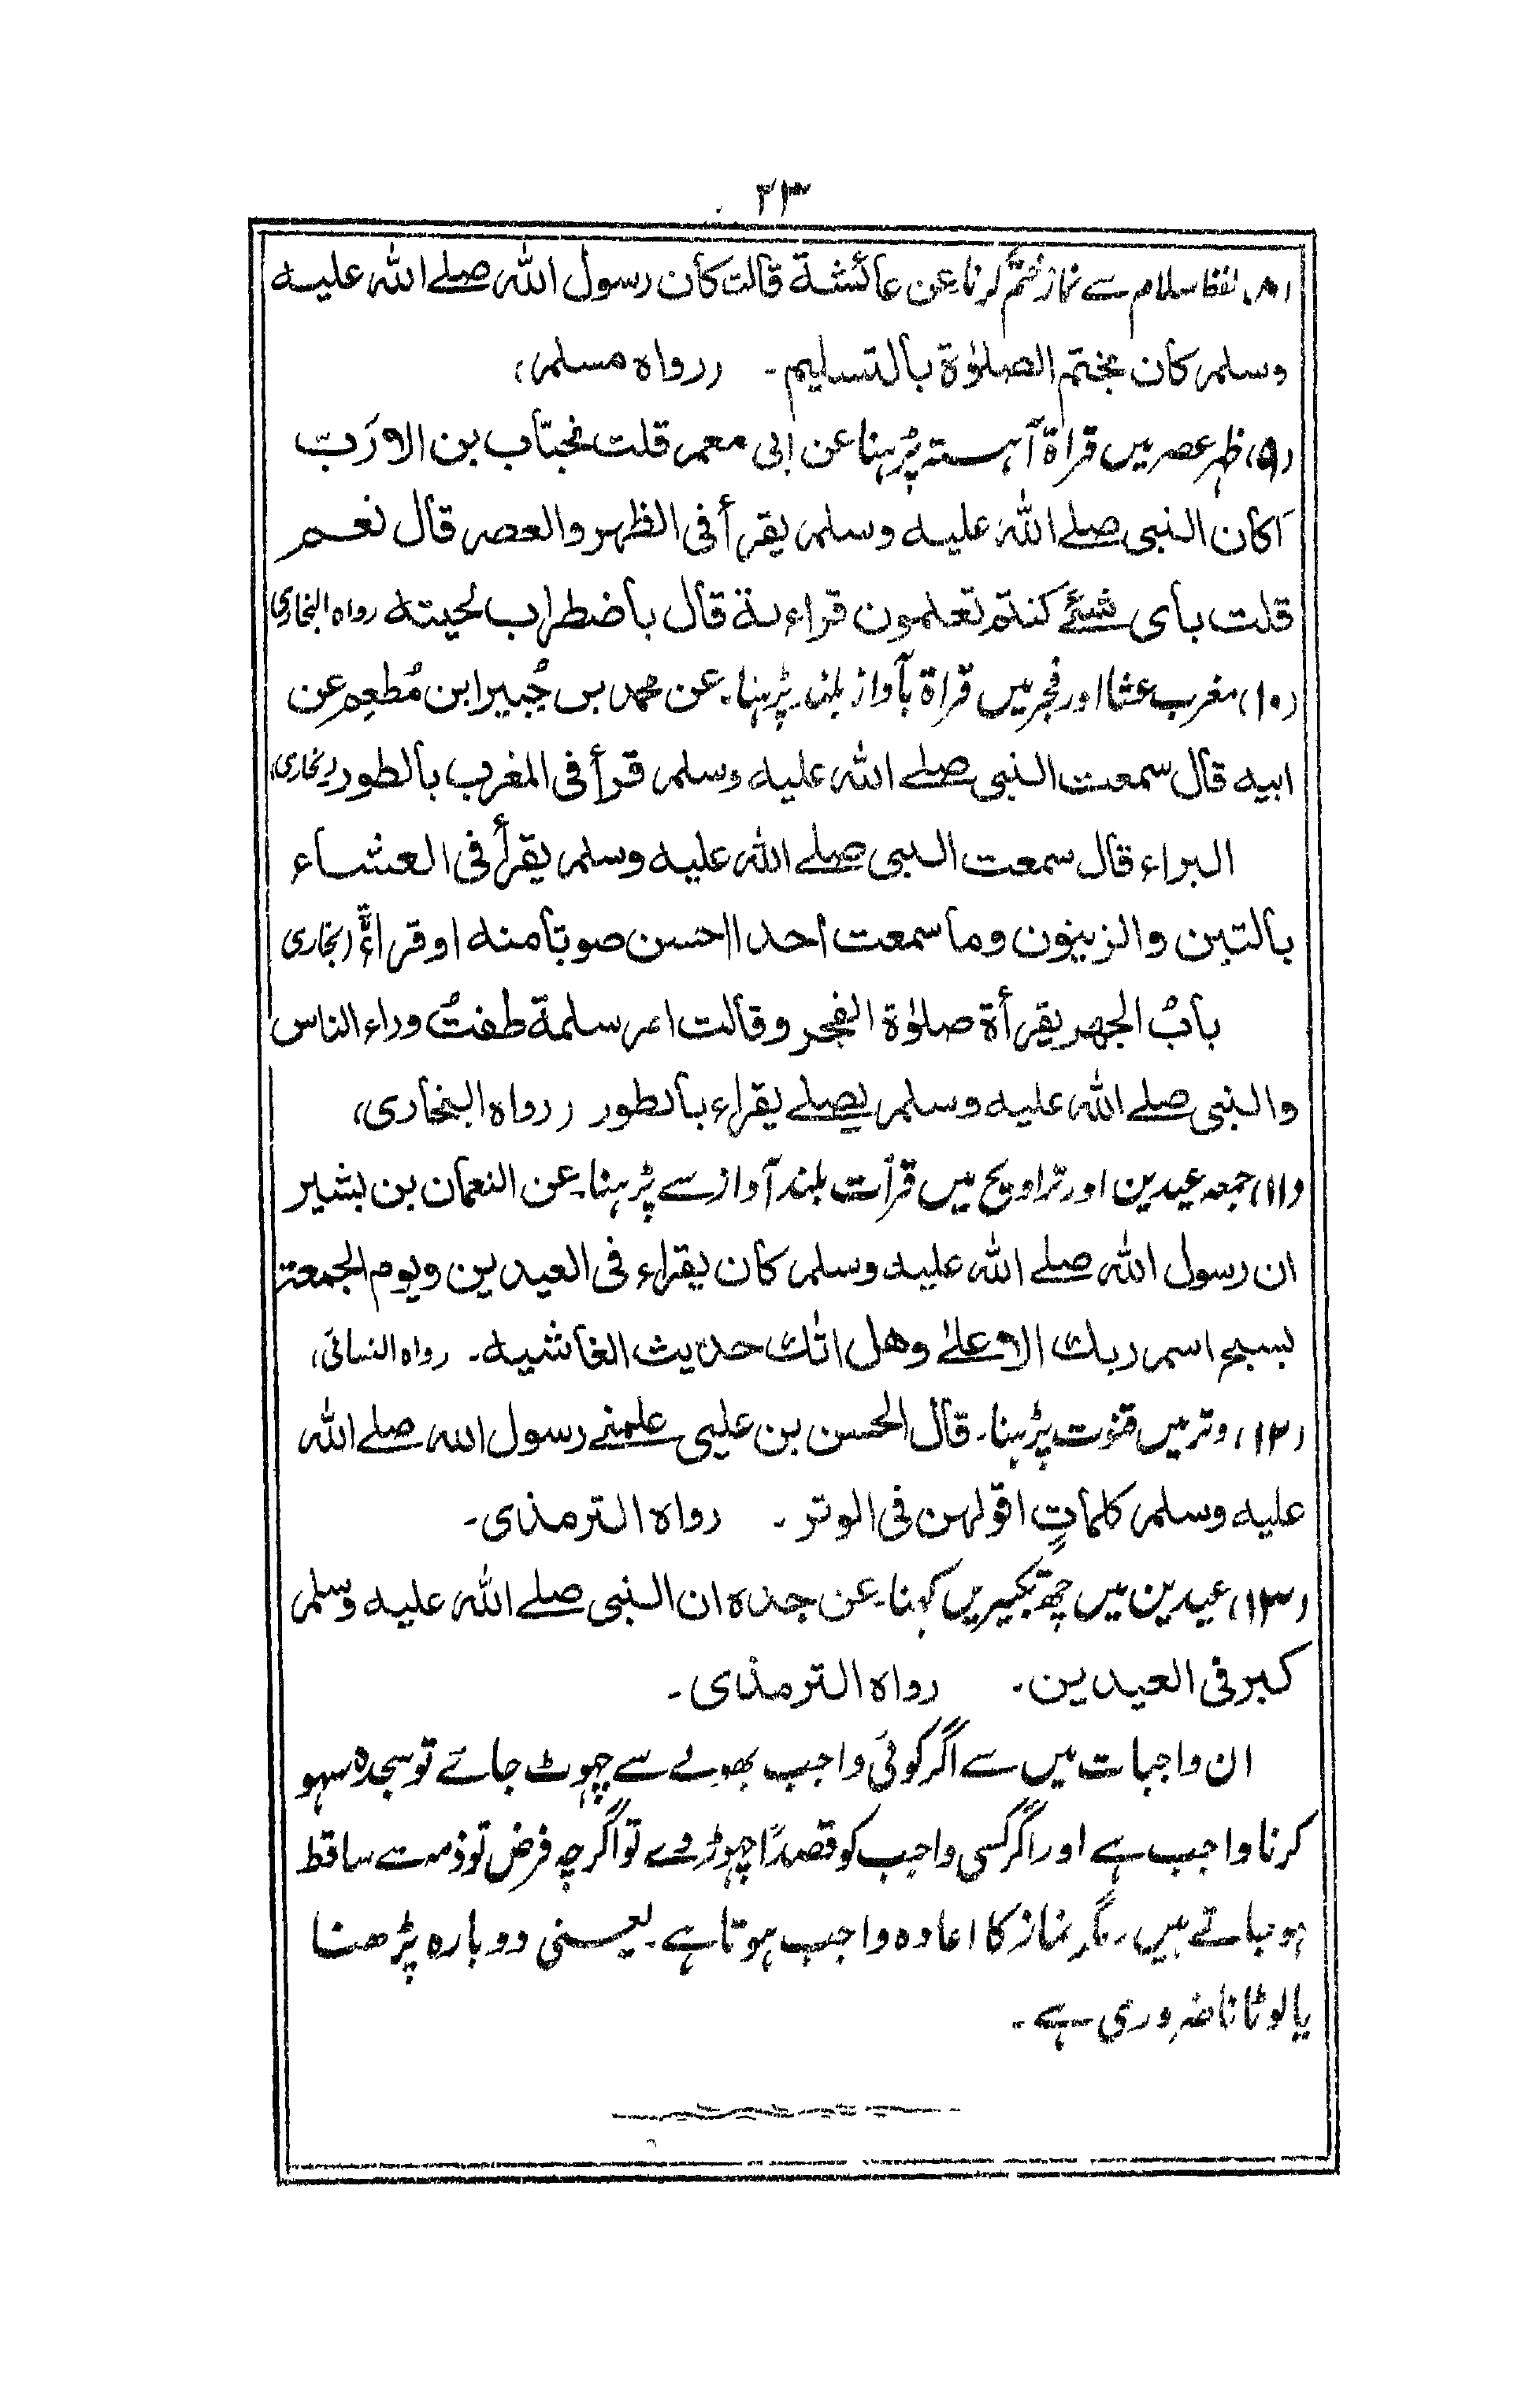 ۲۳
(۸) لفظ سلام سے نماز ختم کرنا۔ عن عائشة قالت كان رسول الله صلے الله عليه
وسلم كان يختم الصلوٰة بالتسليم۔ (رواه مسلم)
(۹) ظہر عصر میں قراۃ آہستہ پڑہنا عن ابى معمر قلت لخبّاب بن الارَتّ
اَكان النبى صلے الله عليه وسلم يقرأ فى الظهر والعصر قال نعم
قلت بأى شئے كنتم تعلمون قراءته قال باضطراب لحيته رواه البخاری
(۱۰) مغرب عشا اور فجر میں قراۃ بآواز بلند پڑہنا۔ عن محمد بن جُبير ابن مُطعِم عن
ابيه قال سمعت النبى صلے الله عليه وسلم قرأ فى المغرب بالطور (بخاری)
البراء قال سمعت النبى صلے الله عليه وسلم يقرأ فى العشاء
بالتين والزيتون وما سمعت احدا احسن صوتا منه او قراءةً (بخاری
بابُ الجهر يقرأة صلوٰة الفجر وقالت ام سلمة طفتُ وراء الناس
والنبى صلے الله عليه وسلم يصلے يقراء بالطور (رواه البخارى)
(۱۱) جمعہ عیدین اور تراویح میں قرأت بلند آواز سے پڑہنا۔ عن النعمان بن بشير
ان رسول الله صلے الله عليه وسلم كان يقراء فى العيدين ويوم الجمعة
بسبح اسم ربك الاعلےٰ وهل اتٰك حديث الغاشيه۔ رواه النسائی)
(۱۲) وتر میں قنوت پڑہنا۔ قال الحسن بن على علمنے رسول الله صلے الله
عليه وسلم كلماتٍ اقولهن فى الوتر۔ رواه الترمذى۔
(۱۳) عیدین میں چھ تکبیریں کہنا۔ عن جده ان النبى صلے الله عليه وسلم
كبر فى العيدين۔ رواه الترمذى۔
ان واجبات میں سے اگر کوئی واجب بھولے سے چہوٹ جائے تو سجدہ سہو
کرنا واجب ہے اور اگر کسی واجب کو قصداً چہوڑ دے تو اگرچہ فرض تو ذمہ سے ساقط
ہو جاتے ہیں۔ مگر نماز کا اعادہ واجب ہوتا ہے۔ یعنی دوبارہ پڑھنا
یا لوٹانا ضروری ہے۔